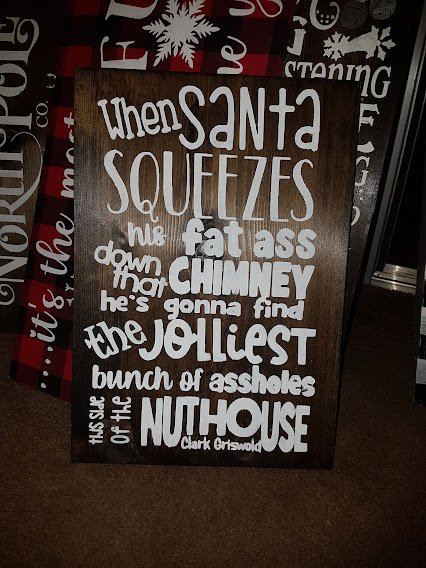 When Santa
SQUEEZES
his fat ass
down that CHIMNEY
he's gonna find
the JOLLiEST
bunch of assholes
this side of the NUTHOUSE
Clark Griswold
NORTH POLE
CO.
....it's the most